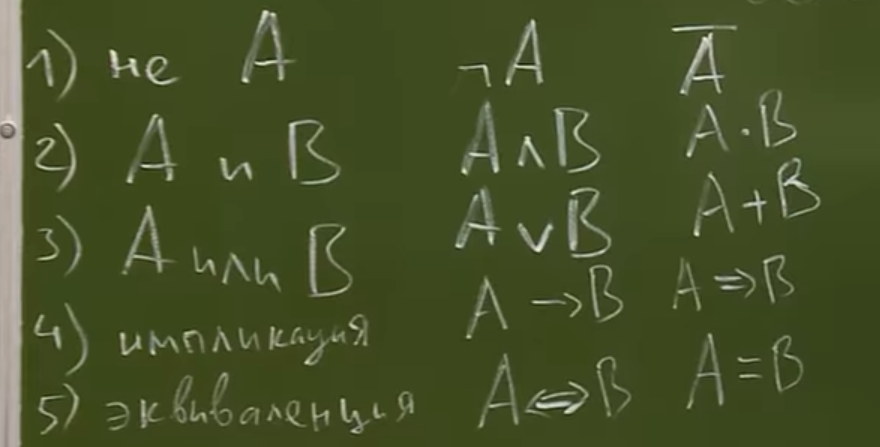 1) не A ¬A A̅
2) A и B A∧B A·B
3) A или B A∨B A+B
4) импликация A→B A⇒B
5) эквиваленция A⇔B A=B